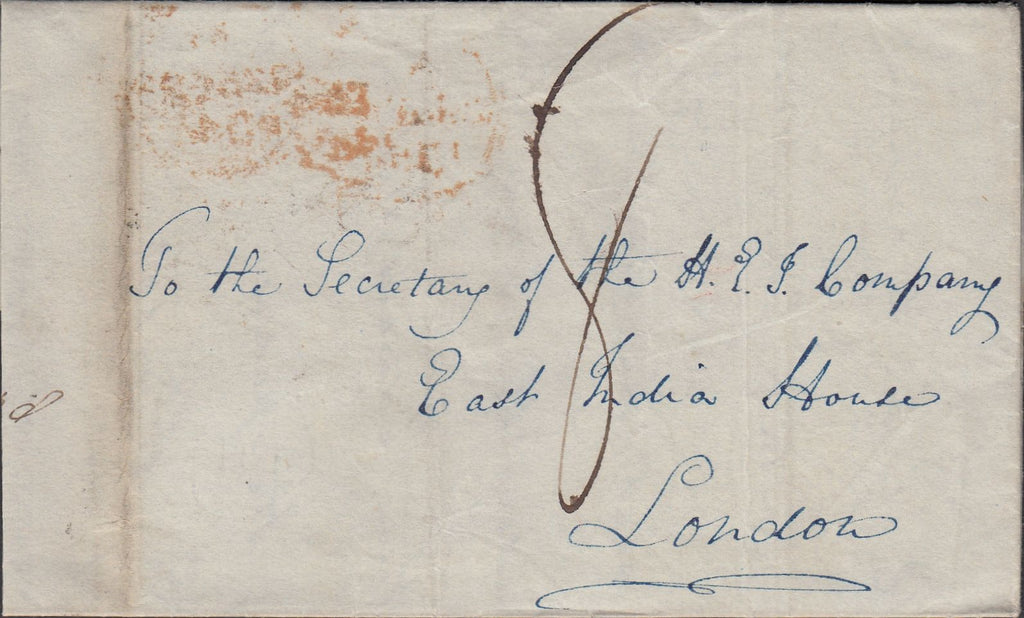 8
To the Secretary of the H. E. I. Company
East India House
London